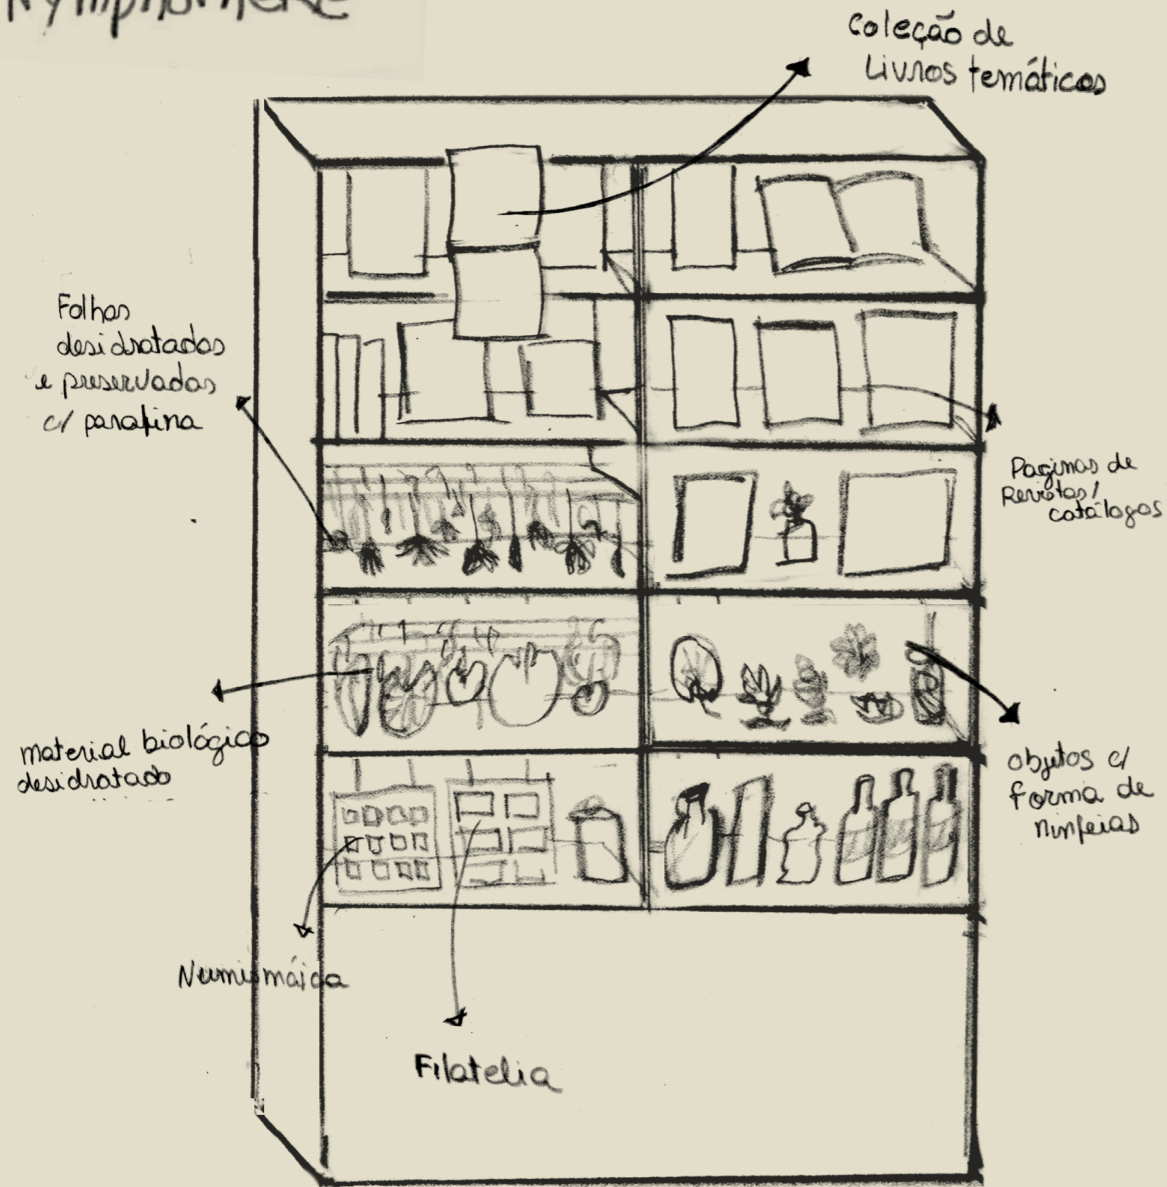 Coleção de
Livros temáticos
Folhas
desidratadas
e preservadas
c/ parafina
Paginas de
Revistas/
catálogos
material biológico
desidratado
objetos c/
forma de
ninfeias
Filatelia